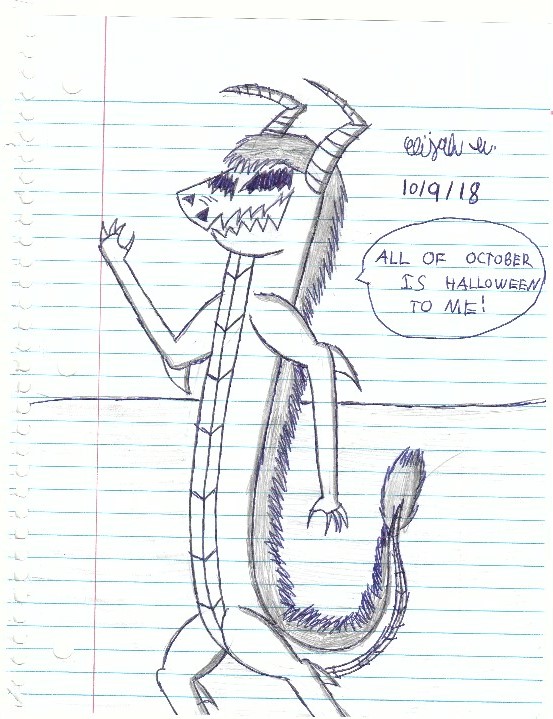 elijah w.
10/9/18
ALL OF OCTOBER
IS HALLOWEEN
TO ME!